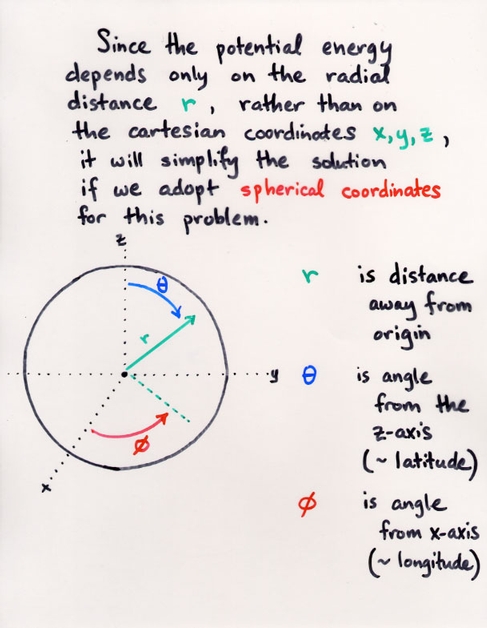 Since the potential energy
depends only on the radial
distance r, rather than on
the cartesian coordinates x,y,z,
it will simplify the solution
if we adopt spherical coordinates
for this problem.
z
θ
r
y
ϕ
x
r is distance
away from
origin
θ is angle
from the
z-axis
(~ latitude)
ϕ is angle
from x-axis
(~ longitude)